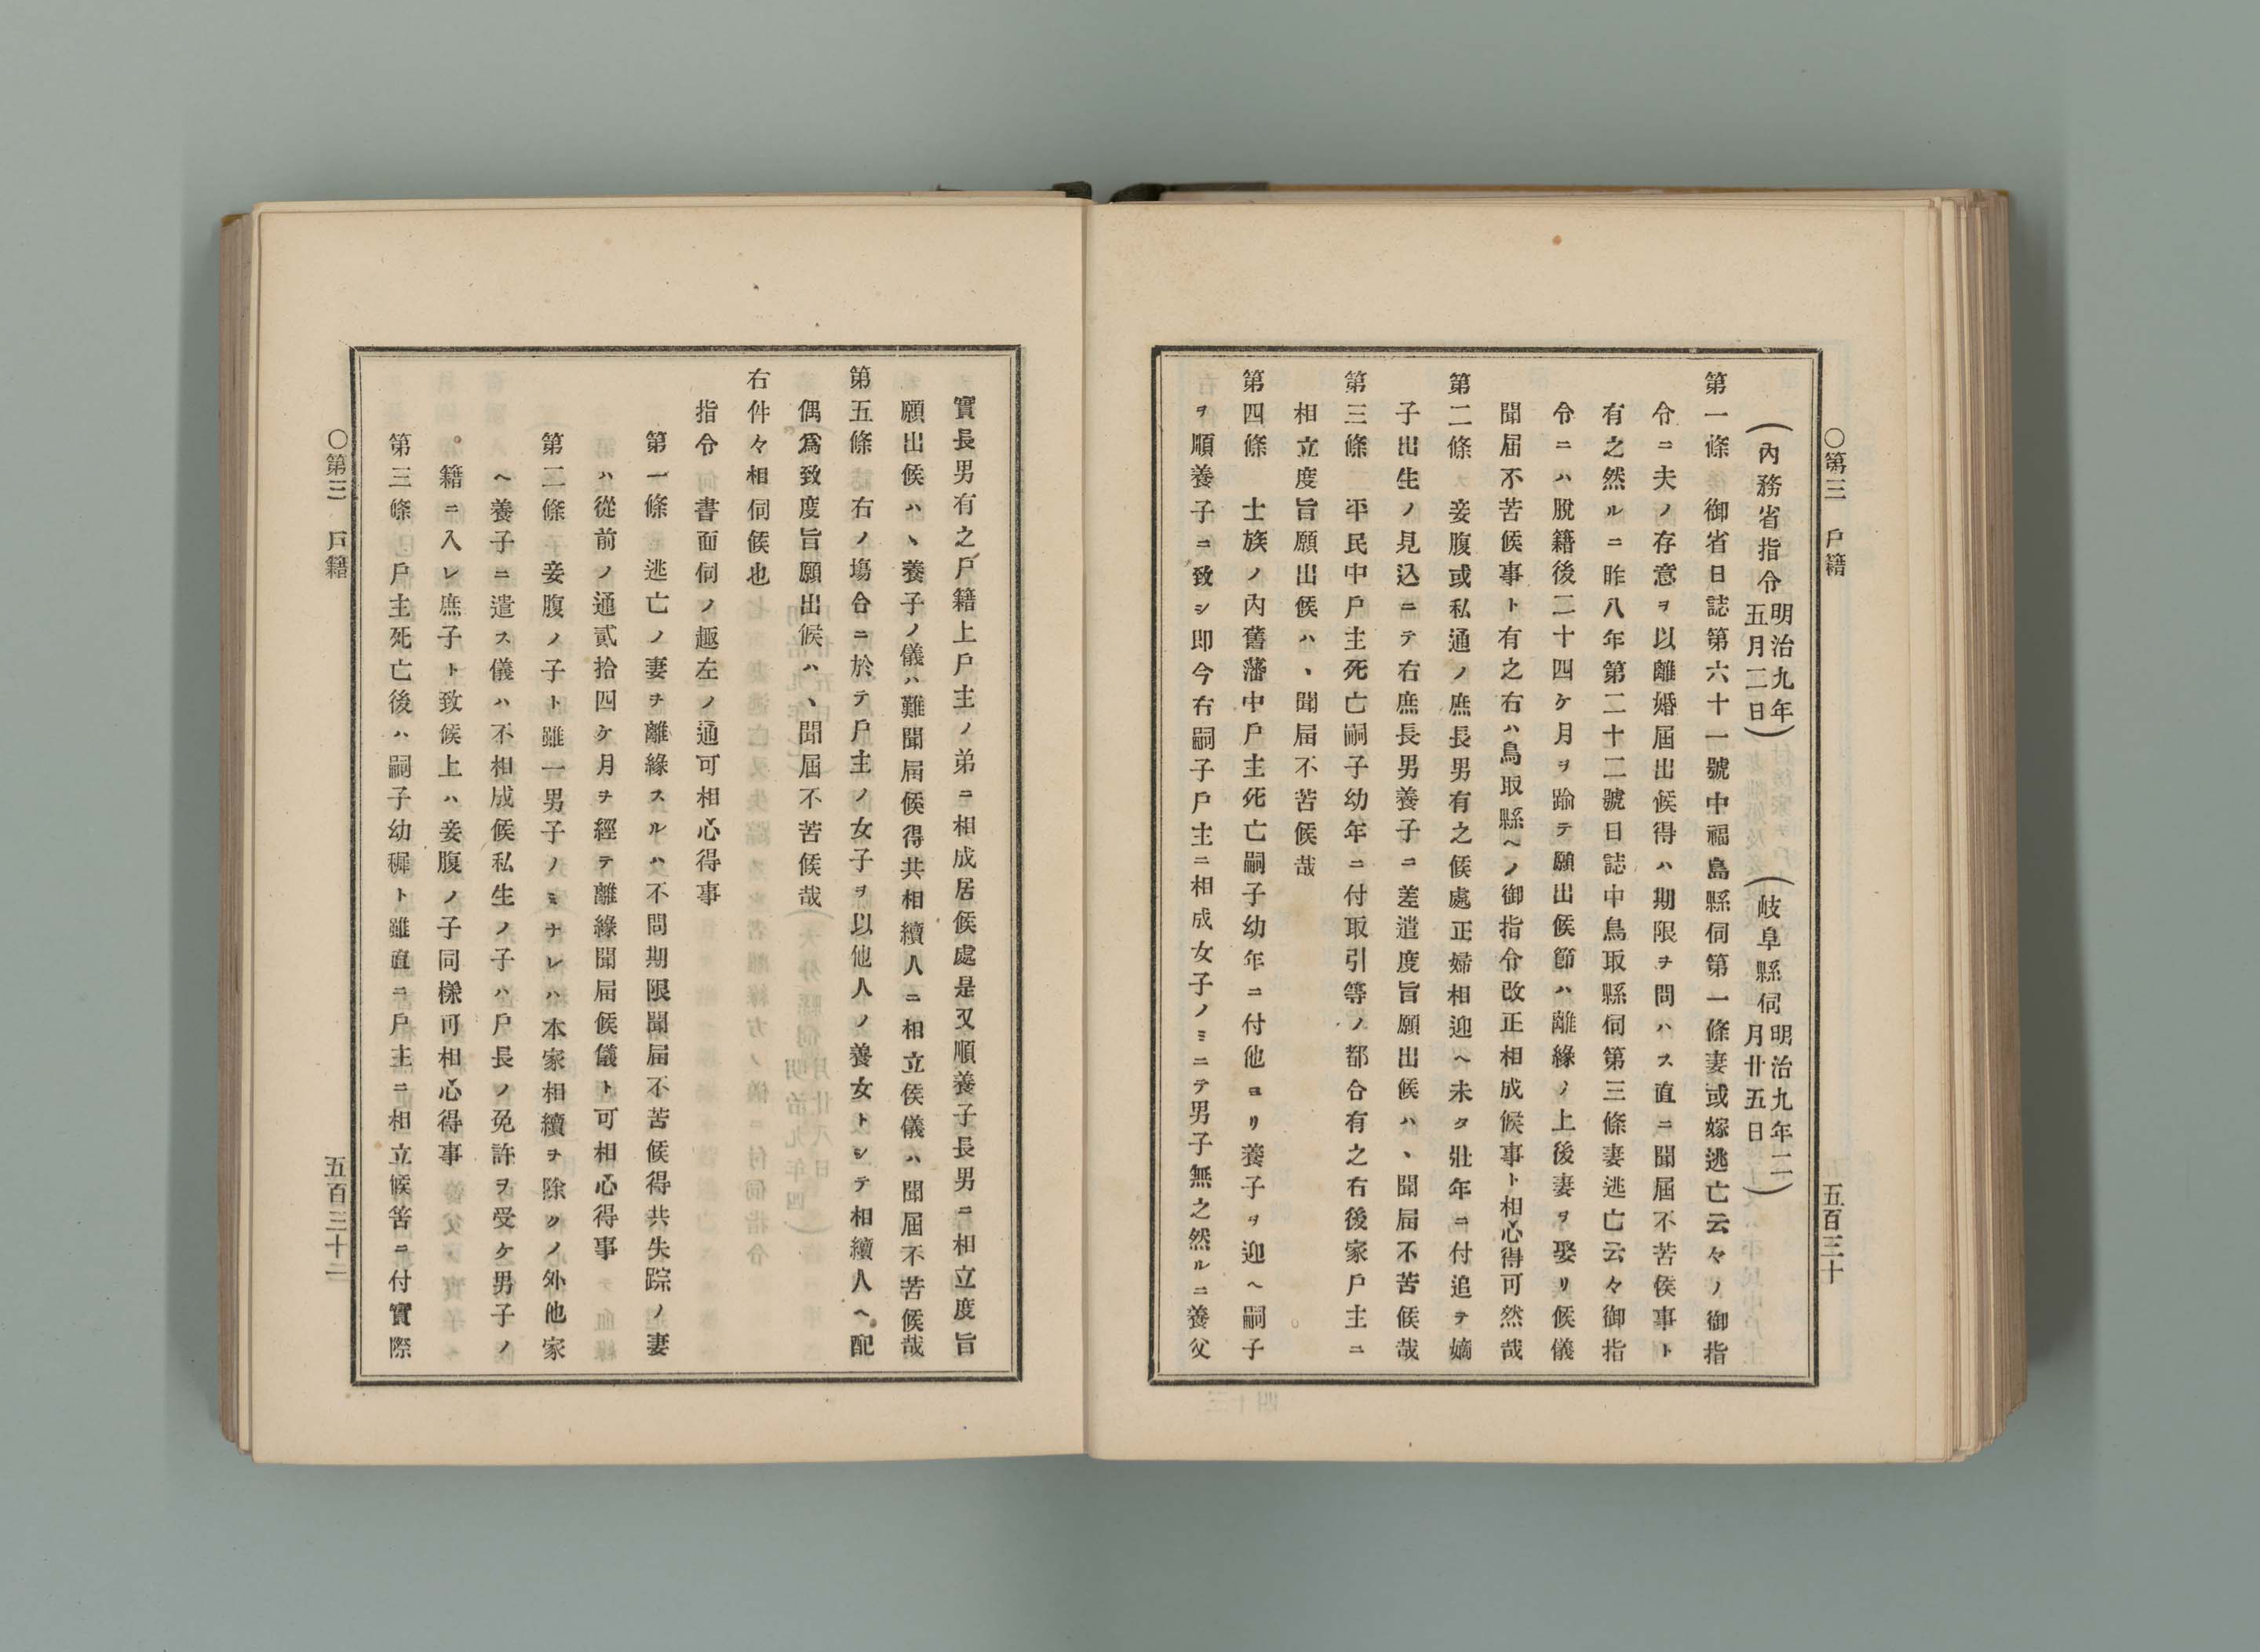 ○第三　戶籍　五百三十
（內務省指令 明治九年五月二日）（岐阜縣伺 明治九年二月廿五日）
第一條　御省日誌第六十一號中福島縣伺第一條妻或嫁逃亡云々ノ御指
令ニ夫ノ存意ヲ以離婚屆出候得ハ期限ヲ問ハス直ニ聞屆不苦候事ト
有之然ルニ昨八年第二十二號日誌中鳥取縣伺第三條妻逃亡云々御指
令ニハ脫籍後二十四ケ月ヲ踰テ願出候節ハ離緣ノ上後妻ヲ娶リ候儀
聞屆不苦候事ト有之右ハ鳥取縣ヘノ御指令改正相成候事ト相心得可然哉
第二條　妾腹或私通ノ庶長男有之候處正婦相迎ヘ未タ壯年ニ付追テ嫡
子出生ノ見込ニテ右庶長男養子ニ差遣度旨願出候ハヽ聞屆不苦候哉
第三條　平民中戶主死亡嗣子幼年ニ付取引等ノ都合有之右後家戶主ニ
相立度旨願出候ハヽ聞屆不苦候哉
第四條　士族ノ內舊藩中戶主死亡嗣子幼年ニ付他ヨリ養子ヲ迎ヘ嗣子
ヲ順養子ニ致シ即今右嗣子戶主ニ相成女子ノミニテ男子無之然ルニ養父
實長男有之戶籍上戶主ノ弟ニ相成居候處是又順養子長男ニ相立度旨
願出候ハヽ養子ノ儀ハ難聞屆候得共相續人ニ相立候儀ハ聞屆不苦候哉
第五條　右ノ塲合ニ於テ戶主ノ女子ヲ以他人ノ養女トシテ相續人ヘ配
偶爲致度旨願出候ハヽ聞屆不苦候哉
右件々相伺候也
指令　書面伺ノ趣左ノ通可相心得事
第一條　逃亡ノ妻ヲ離緣スルハ不問期限聞屆不苦候得共失踪ノ妻
ハ從前ノ通貳拾四ケ月ヲ經テ離緣聞屆候儀ト可相心得事
第二條　妾腹ノ子ト雖一男子ノミナレハ本家相續ヲ除クノ外他家
ヘ養子ニ遣ス儀ハ不相成候私生ノ子ハ戶長ノ免許ヲ受ケ男子ノ
籍ニ入レ庶子ト致候上ハ妾腹ノ子同樣可相心得事
第三條　戶主死亡後ハ嗣子幼穉ト雖直ニ戶主ニ相立候筈ニ付實際
○第三　戶籍　五百三十二